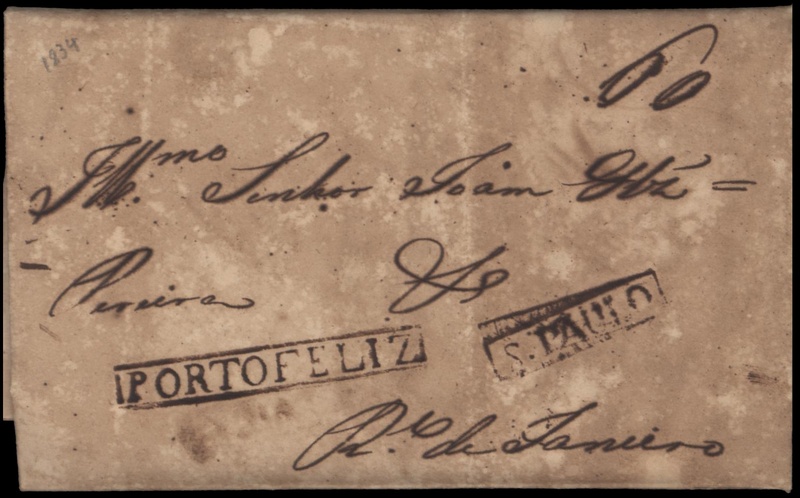 1834
60
Ill.mo Senhor Joam
Pereira &c
PORTOFELIZ
S.PAULO
R.o de Janeiro